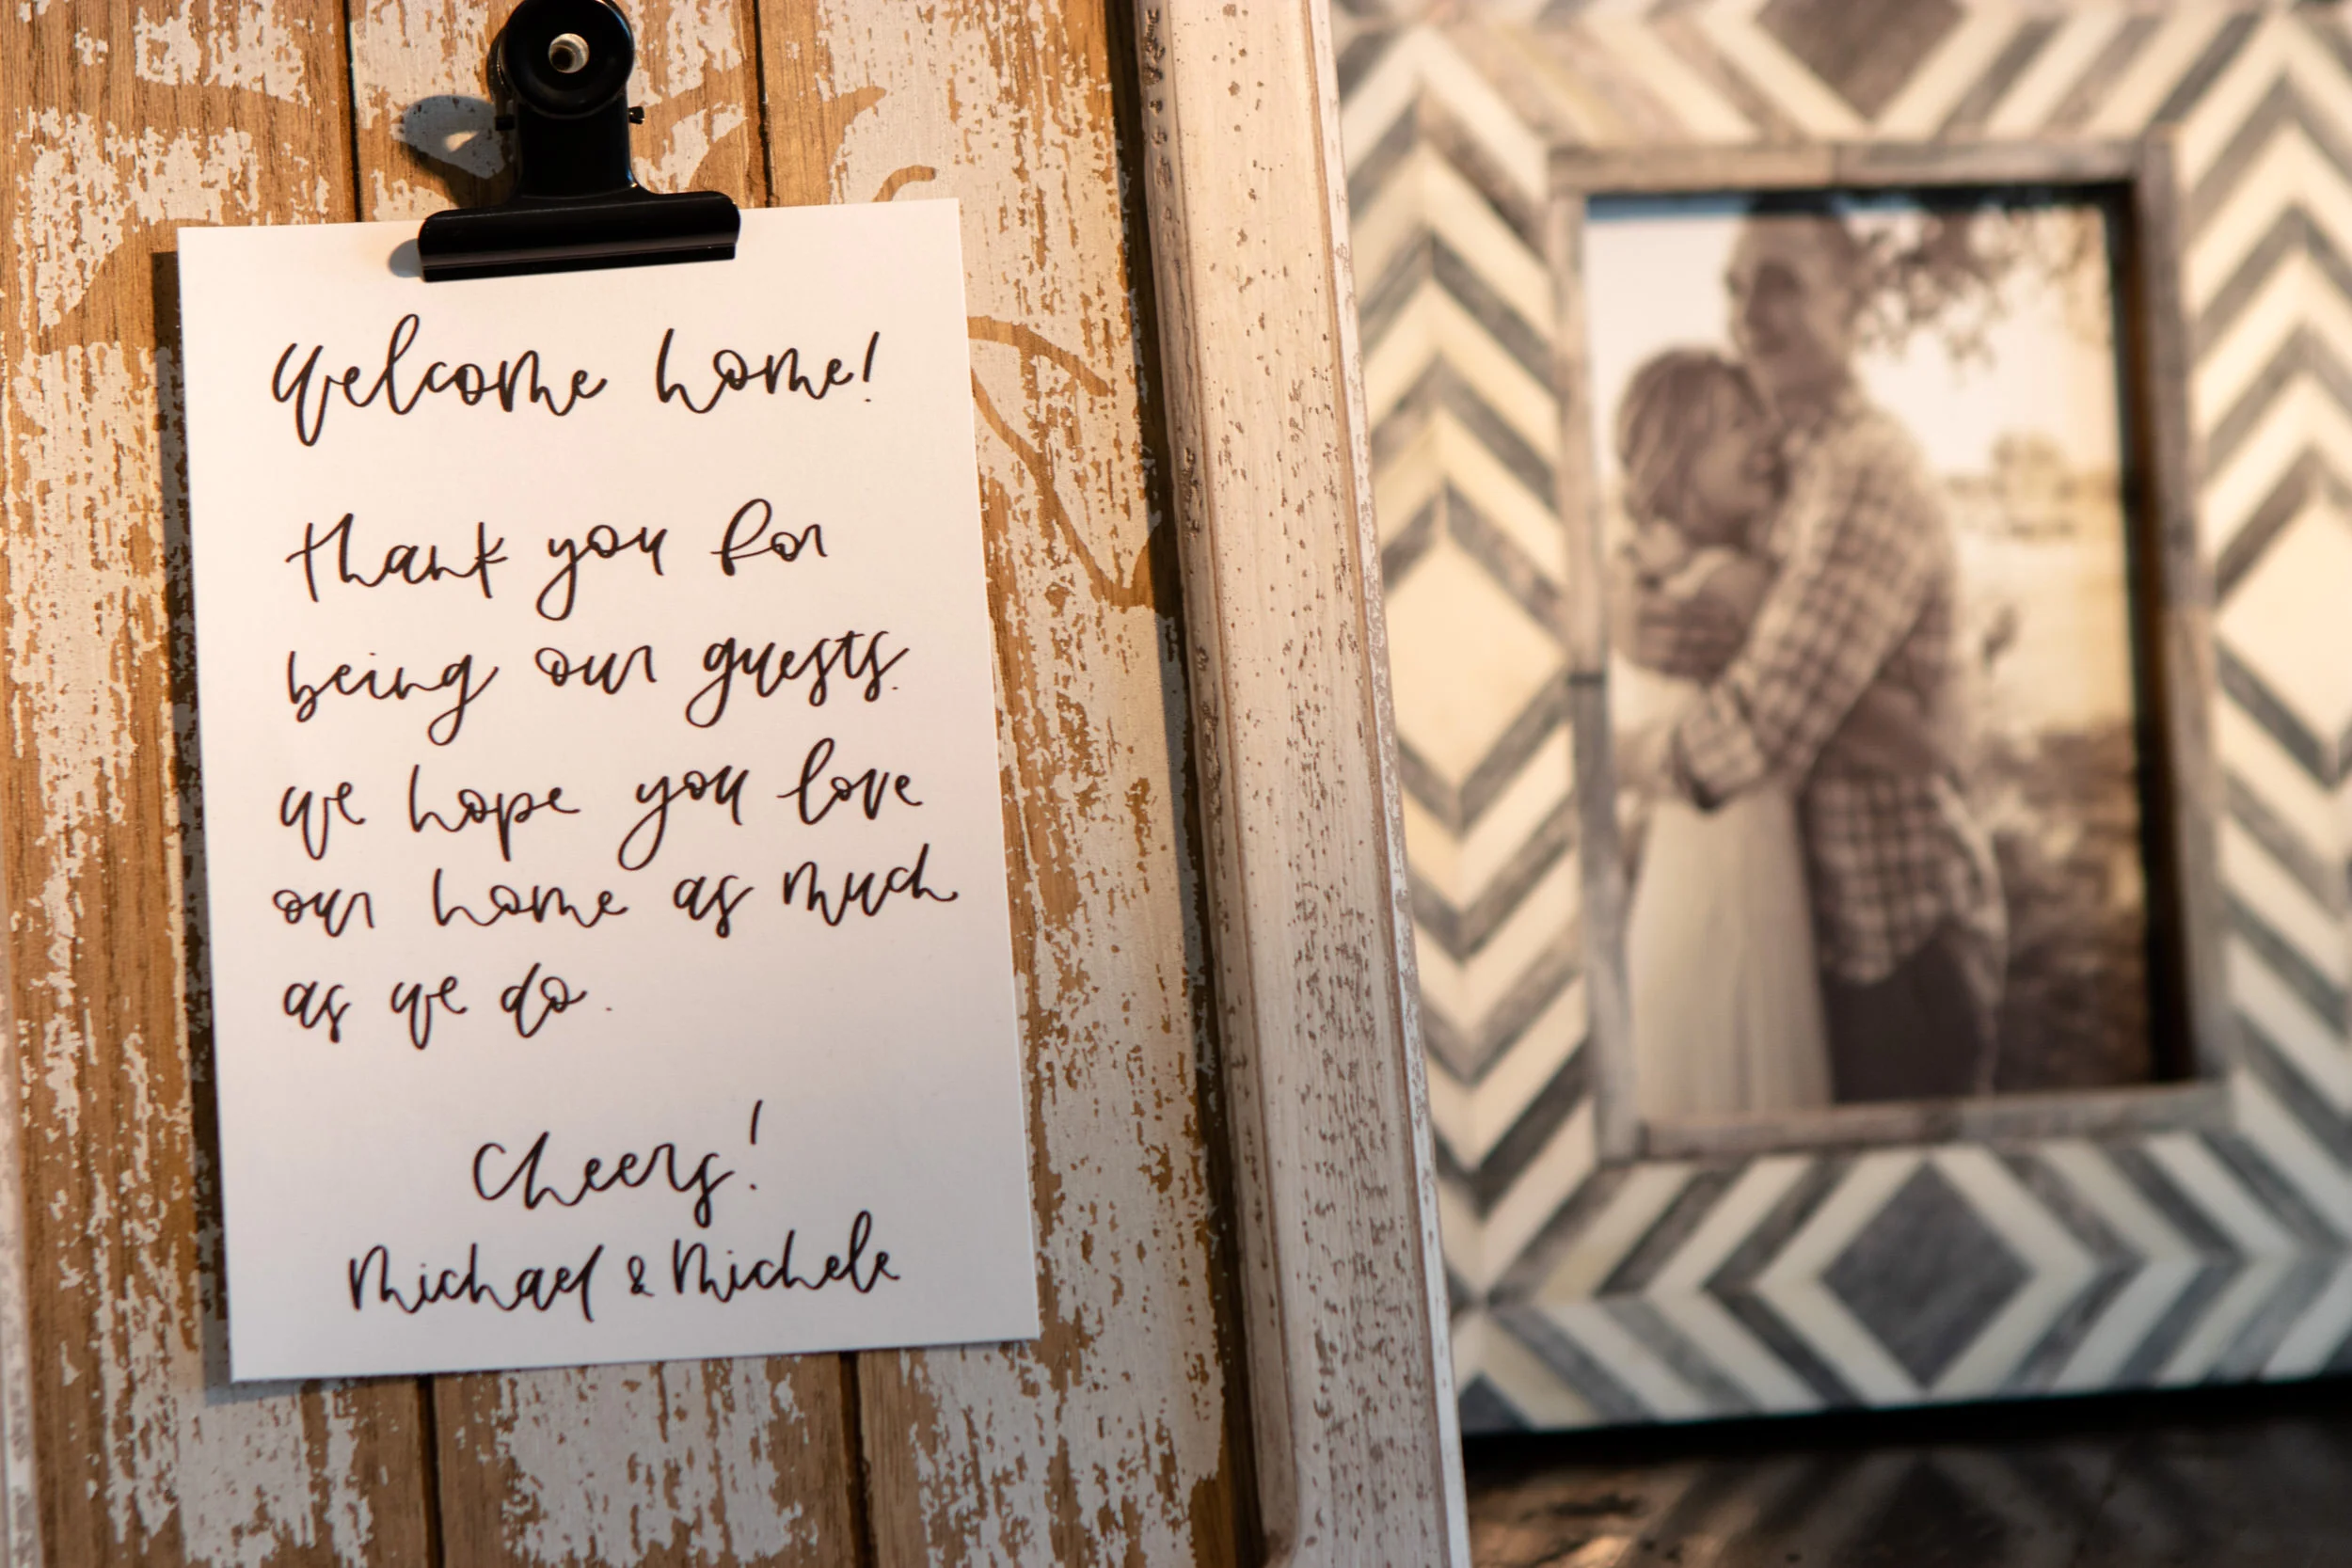 Welcome home!
Thank you for
being our guests.
we hope you love
our home as much
as we do.
Cheers!
Michael & Michele